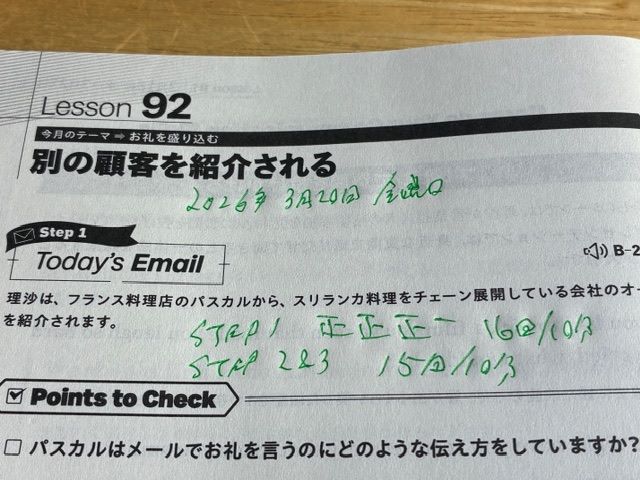 Lesson 92
今月のテーマ ⇒ お礼を盛り込む
別の顧客を紹介される
2026年 3月20日 金曜日
Step 1
Today's Email
B-2
理沙は、フランス料理店のパスカルから、スリランカ料理をチェーン展開している会社のオー
を紹介されます。
STEP 1 正正正一 16回/10分
STEP 2&3 15回/10分
Points to Check
□ パスカルはメールでお礼を言うのにどのような伝え方をしていますか?